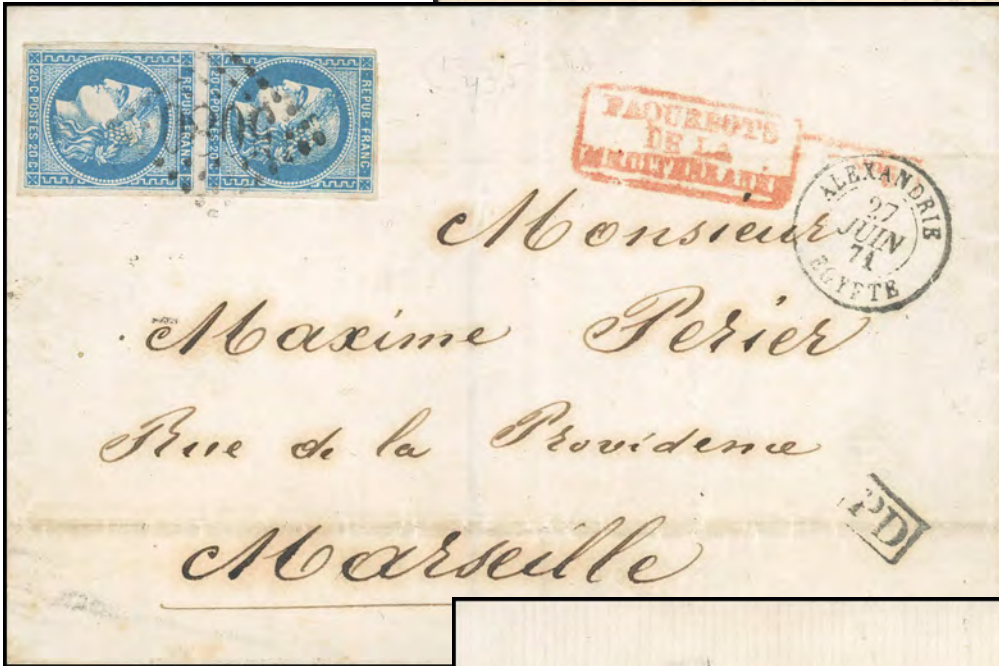 20 C. POSTES 20 C. REPUB. FRANC.
20 C. POSTES 20 C. REPUB. FRANC.
PAQUEBOTS
DE LA
MEDITERRANEE
ALEXANDRIE
27
JUIN
71
EGYPTE
Monsieur
Maxime Perier
Rue de la Providence
Marseille
PD